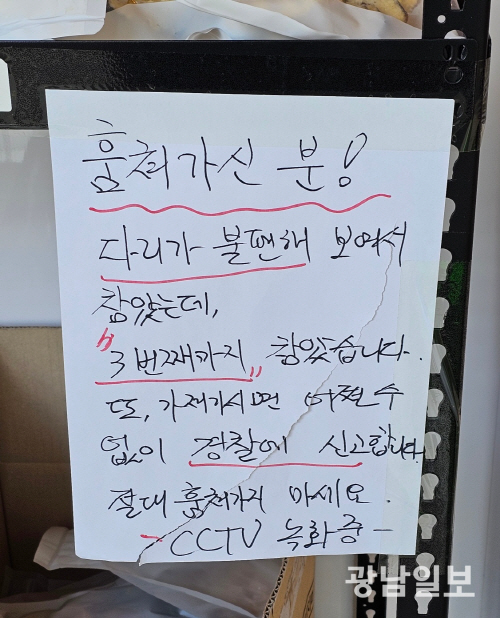 훔쳐가신 분!
다리가 불편해 보여서
참았는데,
"3번째까지" 참았습니다.
또, 가져가시면 어쩔 수
없이 경찰에 신고합니다.
절대 훔쳐가지 마세요.
- CCTV 녹화중 -
광남일보